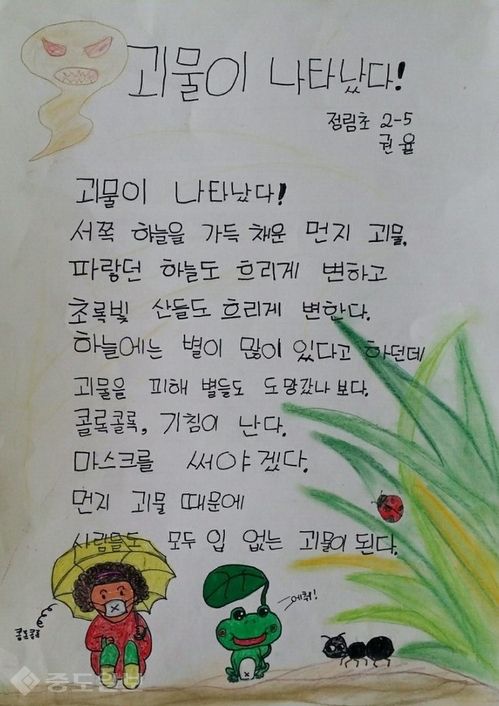 괴물이 나타났다!
정림초 2-5
권율
괴물이 나타났다!
서쪽 하늘을 가득 채운 먼지 괴물,
파랗던 하늘도 흐리게 변하고
초록빛 산들도 흐리게 변한다.
하늘에는 별이 많이 있다고 하던데
괴물을 피해 별들도 도망갔나 보다.
콜록콜록, 기침이 난다.
마스크를 써야겠다.
먼지 괴물 때문에
사람들도 모두 입 없는 괴물이 된다.
에취!
콜록콜록
중도일보